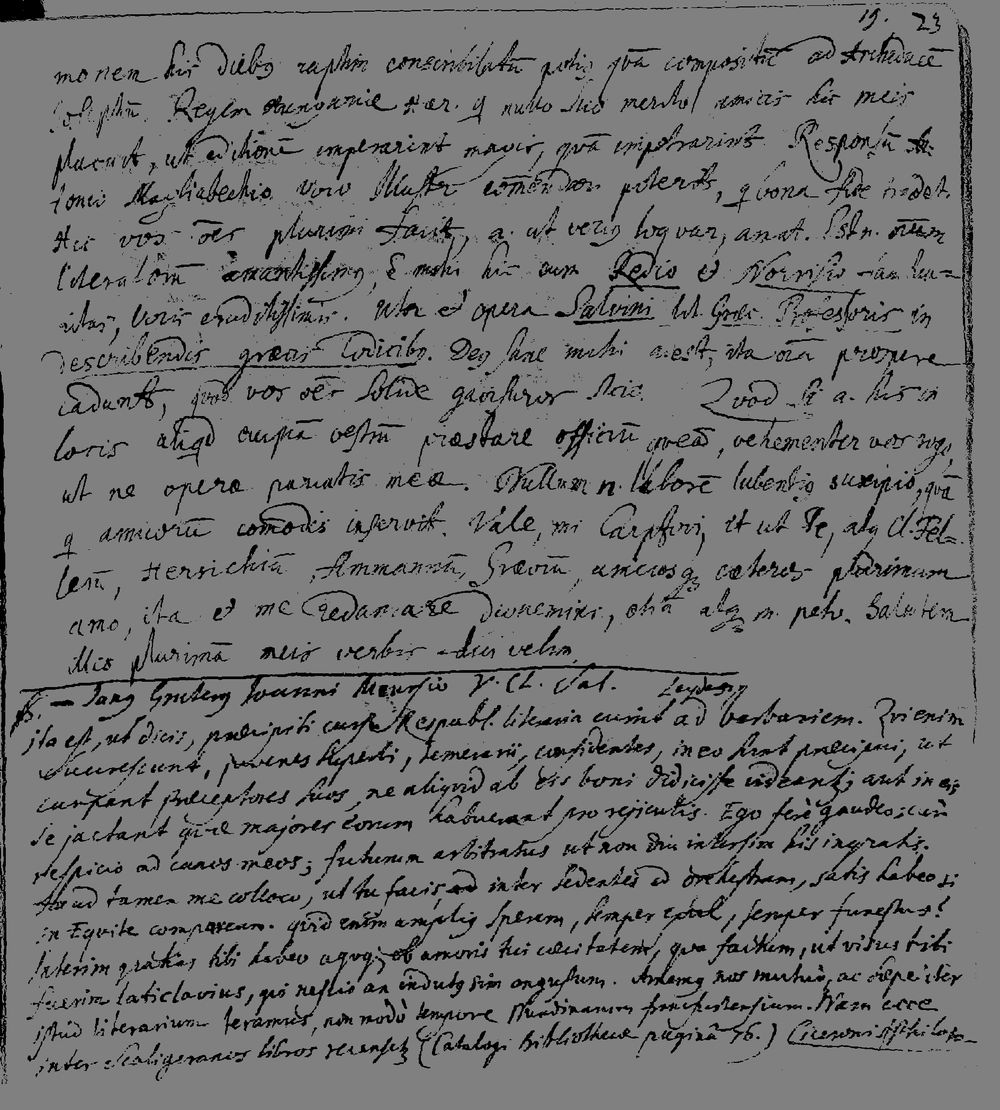 19. 23
monem his diebq raptim conscribilatū potiq quā compositū ad Archiducē
Josephū Regem Hungariæ Her. q nullo suo merito amicis hic meis
placuit, ut editionē imperarint magis, quā impetrarint. Responsū An-
tonio Magliabechio viro Illustr com̄endare poteris, q bona fide tradet.
Hic vos oēs plurimi facit, a. ut veriq loquar, amat. Est n.
literatorū amantissimq, & mihi hic cum Redio et Norrisio familia-
ritas, viris eruditissimis. Utor et opera Salvini lit. Græc. Professoris in
describendis græcis codicibq. Deq sane mihi adest, ita oīa prospere
cadunt, quod vos oēs solide gavisuros scio. Quod si a. his in
locis aliqd cuiquā vestrū præstare officiū queā, vehementer vos rogo,
ut ne operæ parcatis meæ. Nullum n. laborē lubentiq suscipio, quā
q amicorū com̄odis inservit. Vale, mi Carpzovi, et ut Te, atq Cl. Fel-
lerū, Herrichiū, Ammannū, Græviū, amicosq cæteros plurimum
amo, ita et me redamare, etiā atq m. peto. Salutem
illis plurimā meis verbis dici velim.
Janq Gruterq Joanni Meursio V. Cl. Sal.
ita est, ut dicis, præcipiti cursu Respubl. literaria cumt ad barbariem. Qvi enim
succrescunt, juvenes superbi, temerarii, confidentes, in eo sunt præcipui, ut
carpant præceptores suos, ne aliquid ab eis boni didicisse videant; aut in eis
se jactant quæ majores eorum habuerunt pro rejiculis. Ego ferè gaudeo; cum
respicio ad canos meos; futurum arbitratus ut non diu intersim his ingratis.
tamen me colloco, ut tu facis, inter sedentes ad orchestram, satis habeo si
in Equite compaream. quid enim ampliq sperem, semper exul, semper funestus?
Interim gratias tibi habeo agoq; ob amoris tui cæcitatem, qua factum, ut visus tibi
fuerim laticlavius, qui nescio an indutq sim angustum. Amemq nos mutuò, ac sæpe iter
istud literarium teramus, non modò tempore Nundinarum francfurtensium. Nam ecce
inter Scaligeranos libros recenset (Catalogi Bibliothecæ paginâ 76.) Ciceronis Philoso-